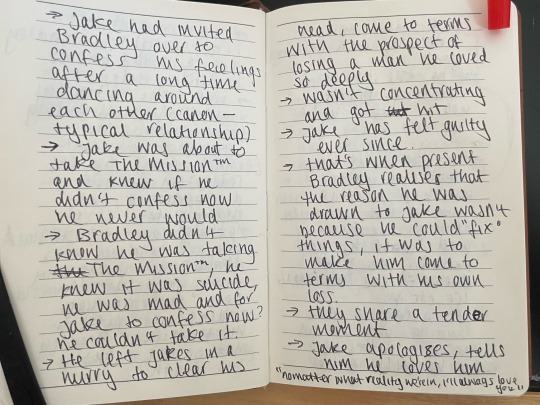 → Jake had invited
Bradley over to
confess his feelings
after a long time
dancing around
each other (canon-
typical relationship)
→ Jake was about to
take The Mission™
and knew if he
didn't confess now
he never would
→ Bradley didn't
know he was taking
the The Mission™, he
knew it was suicide,
he was mad and for
Jake to confess now?
he couldn't take it.
→ He left Jakes in a
hurry to clear his
head, come to terms
with the prospect of
losing a man he loved
so deeply
→ wasn't concentrating
and got hit
→ Jake has felt guilty
ever since.
→ that's when present
Bradley realises that
the reason he was
drawn to Jake wasn't
because he could "fix"
things, it was to
make him come to
terms with his own
loss.
→ they share a tender
moment
→ Jake apologises, tells
him he loves him
"no matter what reality we're in, i'll always love
you"